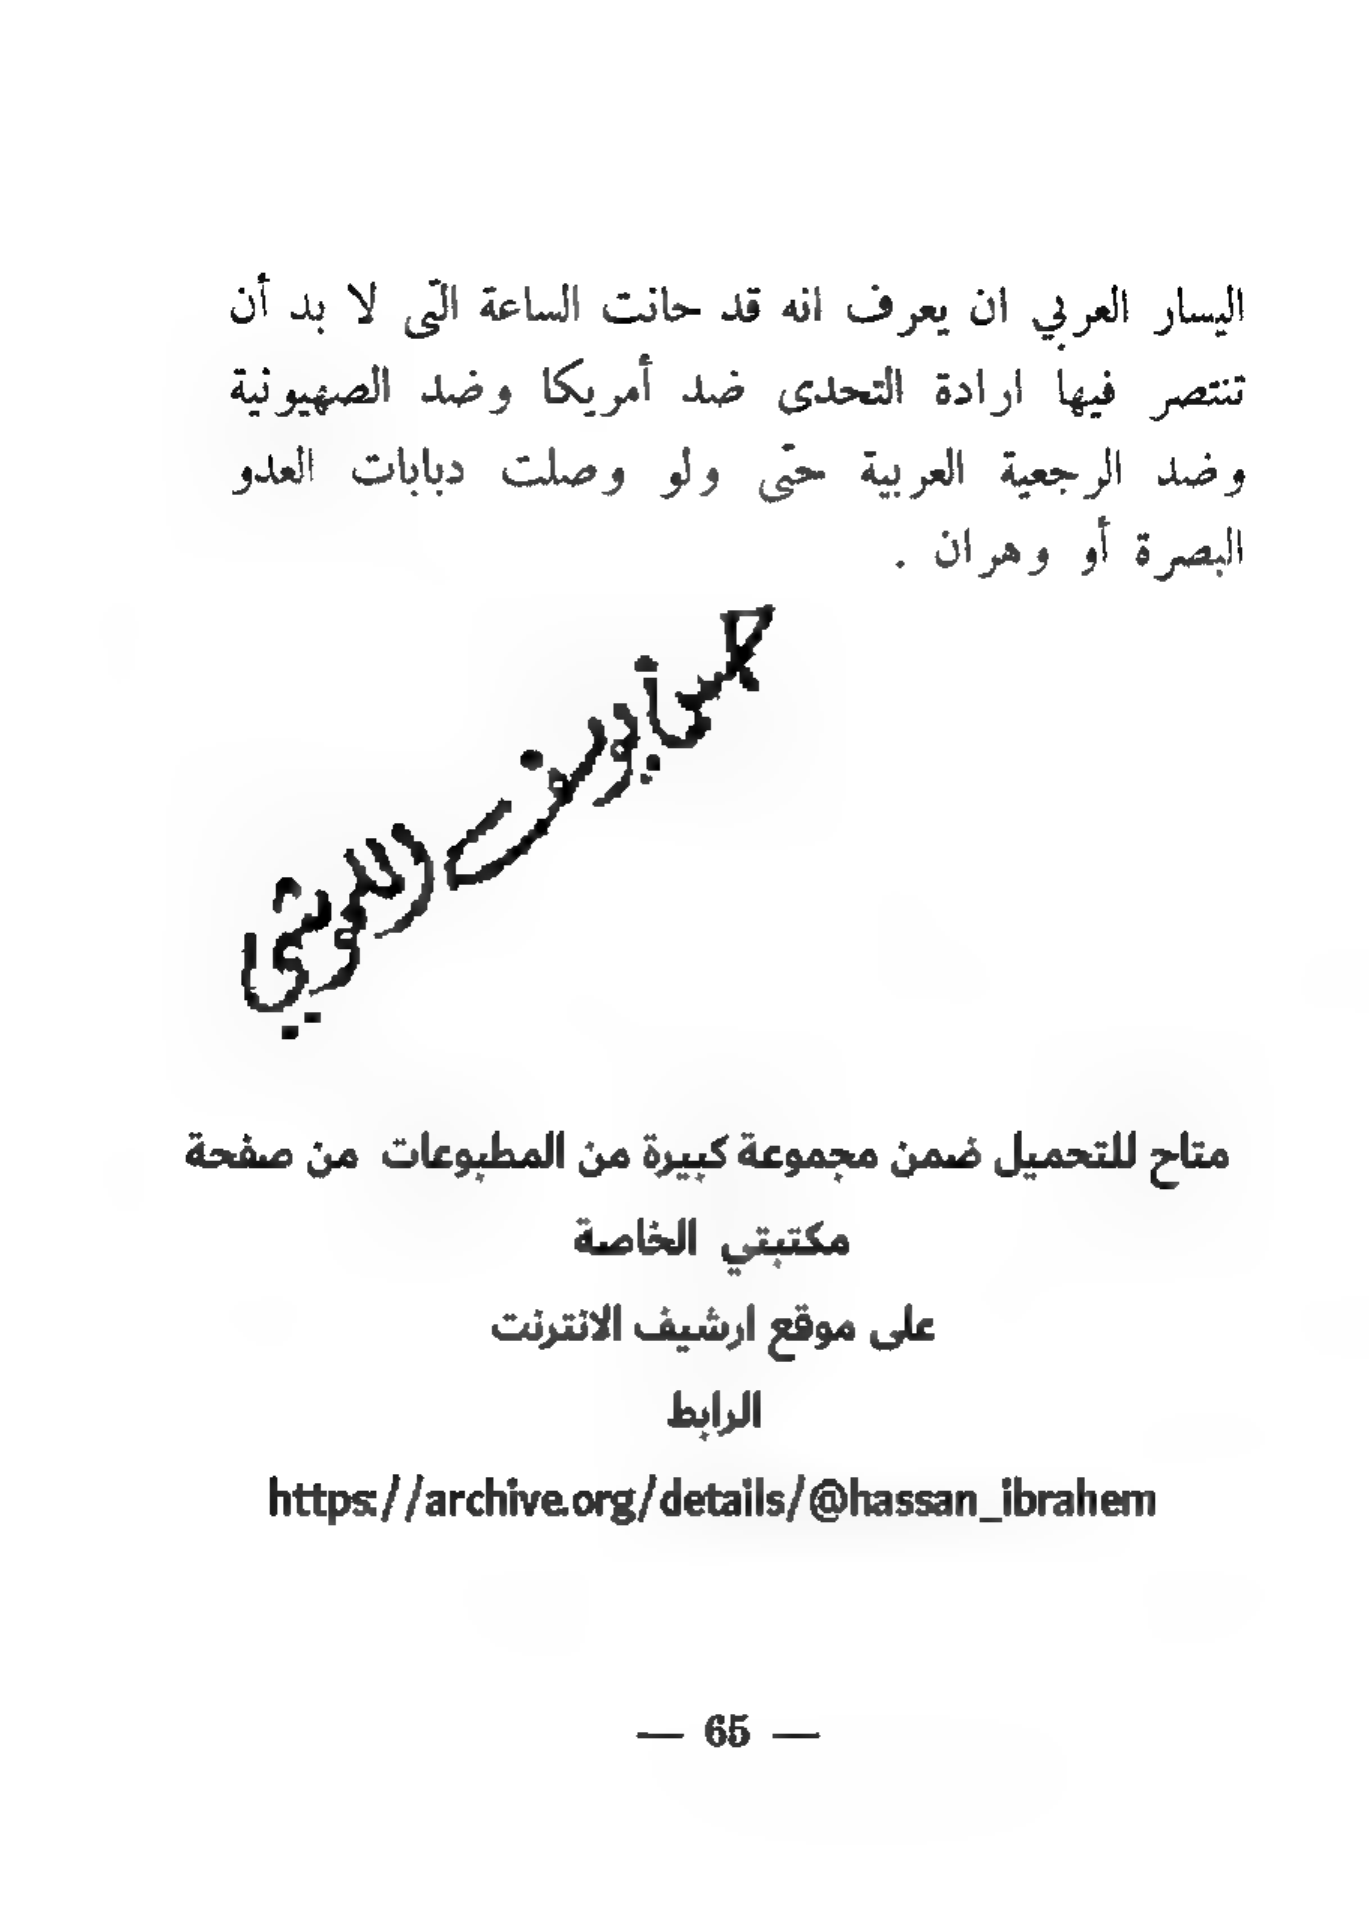 اليسار العربي ان يعرف انه قد حانت الساعة التى لا بد أن
تنتصر فيها ارادة التحدى ضد أمريكا وضد الصهيونية
وضد الرجعية العربية حتى ولو وصلت دبابات العدو
البصرة أو وهران .
متاح للتحميل ضمن مجموعة كبيرة من المطبوعات من صفحة
مكتبتي الخاصة
على موقع ارشيف الانترنت
الرابط
https://archive.org/details/@hassan_ibrahem
— 65 —